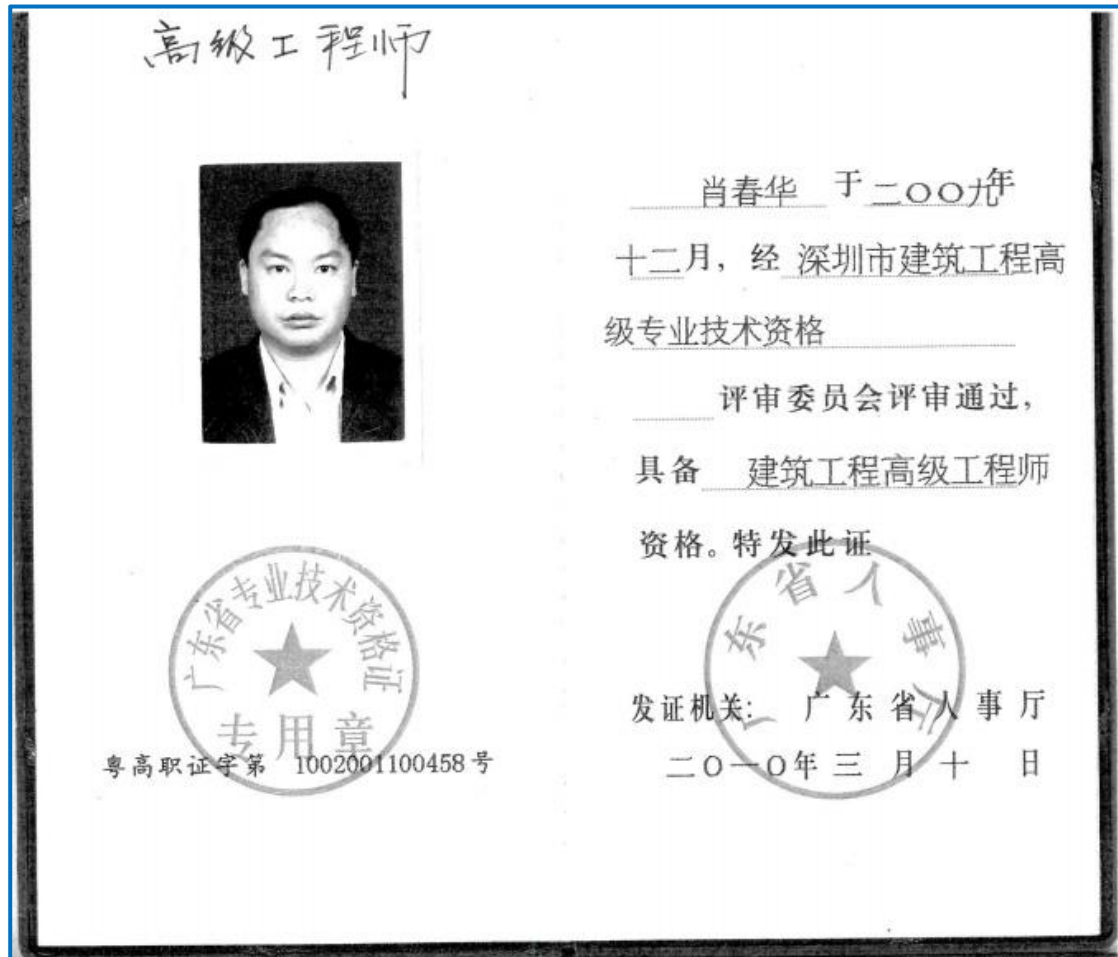 高级工程师
广东省专业技术资格证
专用章
粤高职证字第 1002001100458 号
肖春华 于 二〇〇九年
十二月，经 深圳市建筑工程高
级专业技术资格
评审委员会评审通过，
具备 建筑工程高级工程师
资格。特发此证
广东省人事厅
发证机关: 广东省人事厅
二〇一〇年三月十日